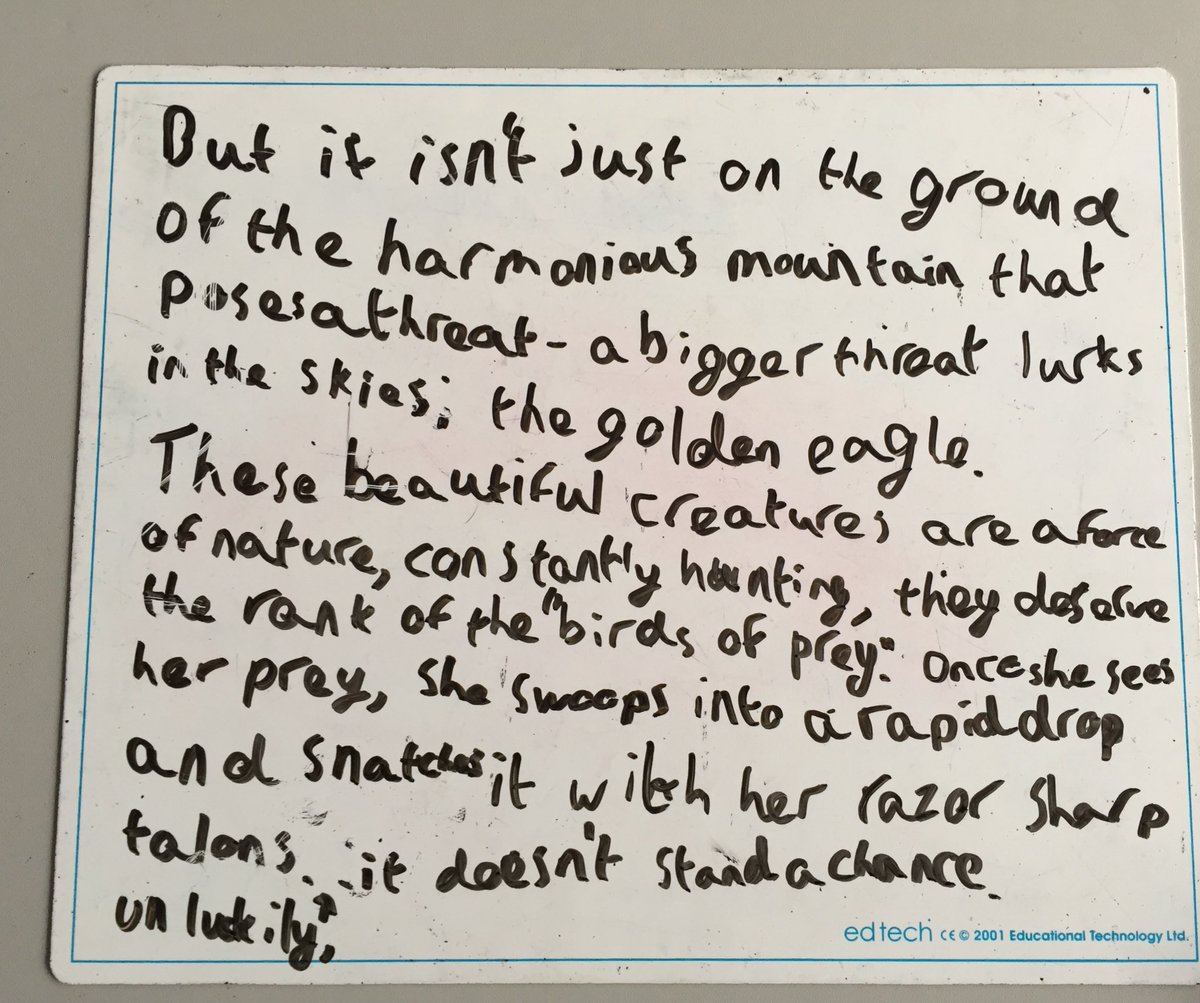 But it isn't just on the ground
of the harmonious mountain that
poses a threat - a bigger threat lurks
in the skies; the golden eagle.
These beautiful creatures are a force
of nature, constantly hunting, they deserve
the rank of the "birds of prey". Once she sees
her prey, she swoops into a rapid drop
and snatches it with her razor sharp
talons. it doesn't stand a chance.
unluckily,
edtech CE © 2001 Educational Technology Ltd.